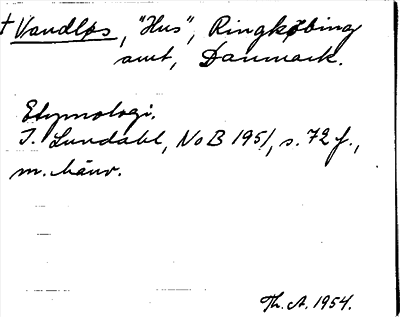 † Vandløs, "Hus", Ringkøbing
amt, Danmark.
Etymologi.
I. Lundahl, NoB 1951, s. 72 f.,
m. hänv.
Th. A. 1954.